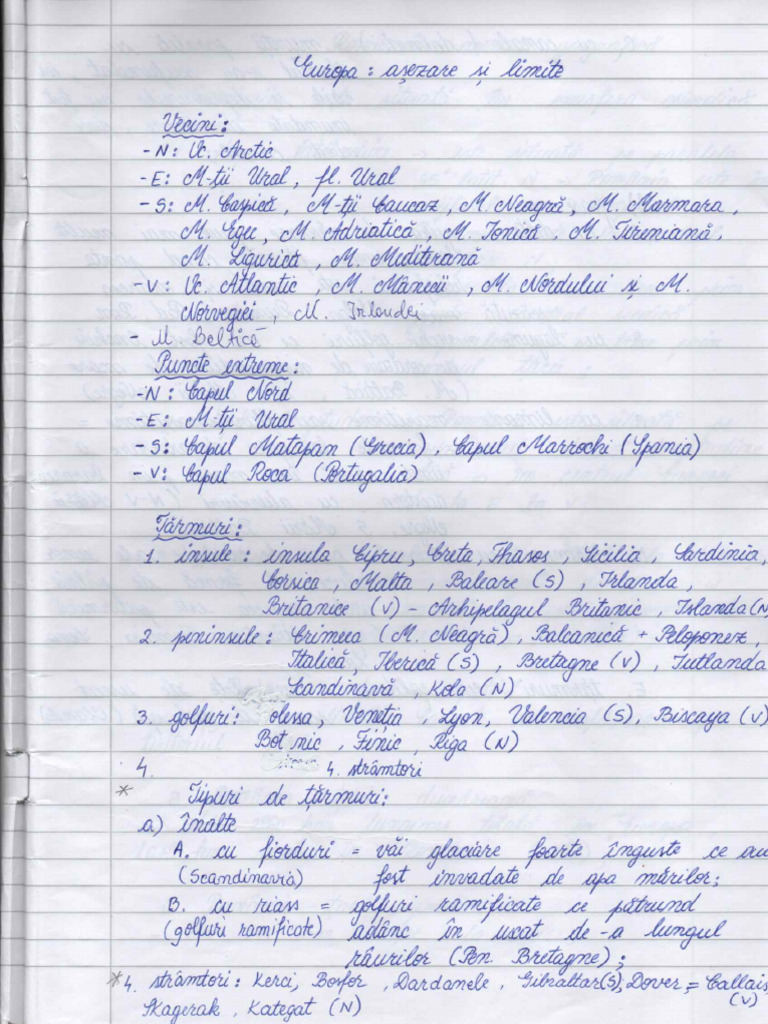 Europa: așezare și limite
Vecini:
- N: Oc. Arctic
- E: M-ții Ural, fl. Ural
- S: M. Caspică, M-ții Caucaz, M. Neagră, M. Marmara,
M. Egee, M. Adriatică M. Ionică, M. Tireniană,
M. Ligurică, M. Mediterană
- V: Oc. Atlantic, M. Mânecii, M. Nordului și M.
Norvegiei, M. Irlandei
- M. Baltică
Puncte extreme:
- N: Capul Nord
- E: M-ții Ural
- S: Capul Matapan (Grecia), Capul Marrochi (Spania)
- V: Capul Roca (Portugalia)
Țărmuri:
1. insule: insula Cipru, Creta, Thasos, Sicilia, Sardinia,
Corsica, Malta, Baleare (S), Irlanda,
Britanice (V) - Arhipelagul Britanic, Islanda (N
2. peninsule: Crimeea (M. Neagră), Balcanică + Peloponez,
Italică, Iberică (S), Bretagne (V), Iutlanda
Scandinavă, Kola (N)
3. golfuri: olessa, Veneția, Lyon, Valencia (S), Biscaya (V)
Bot nic, Finic, Riga (N)
4. 4. strâmtori
* Tipuri de țărmuri:
a) înalte
A. cu fiorduri = văi glaciare foarte înguste ce au
(Scandinavă) fost invadate de apa mărilor;
B. cu riass = golfuri ramificate ce pătrund
(golfuri ramificate) adânc în uscat de-a lungul
râurilor (Pen. Bretagne);
*4. strâmtori: Kerci, Bosfor, Dardanele, Gibraltar(S), Dover = Callais
(V)
Skagerak, Kategat (N)